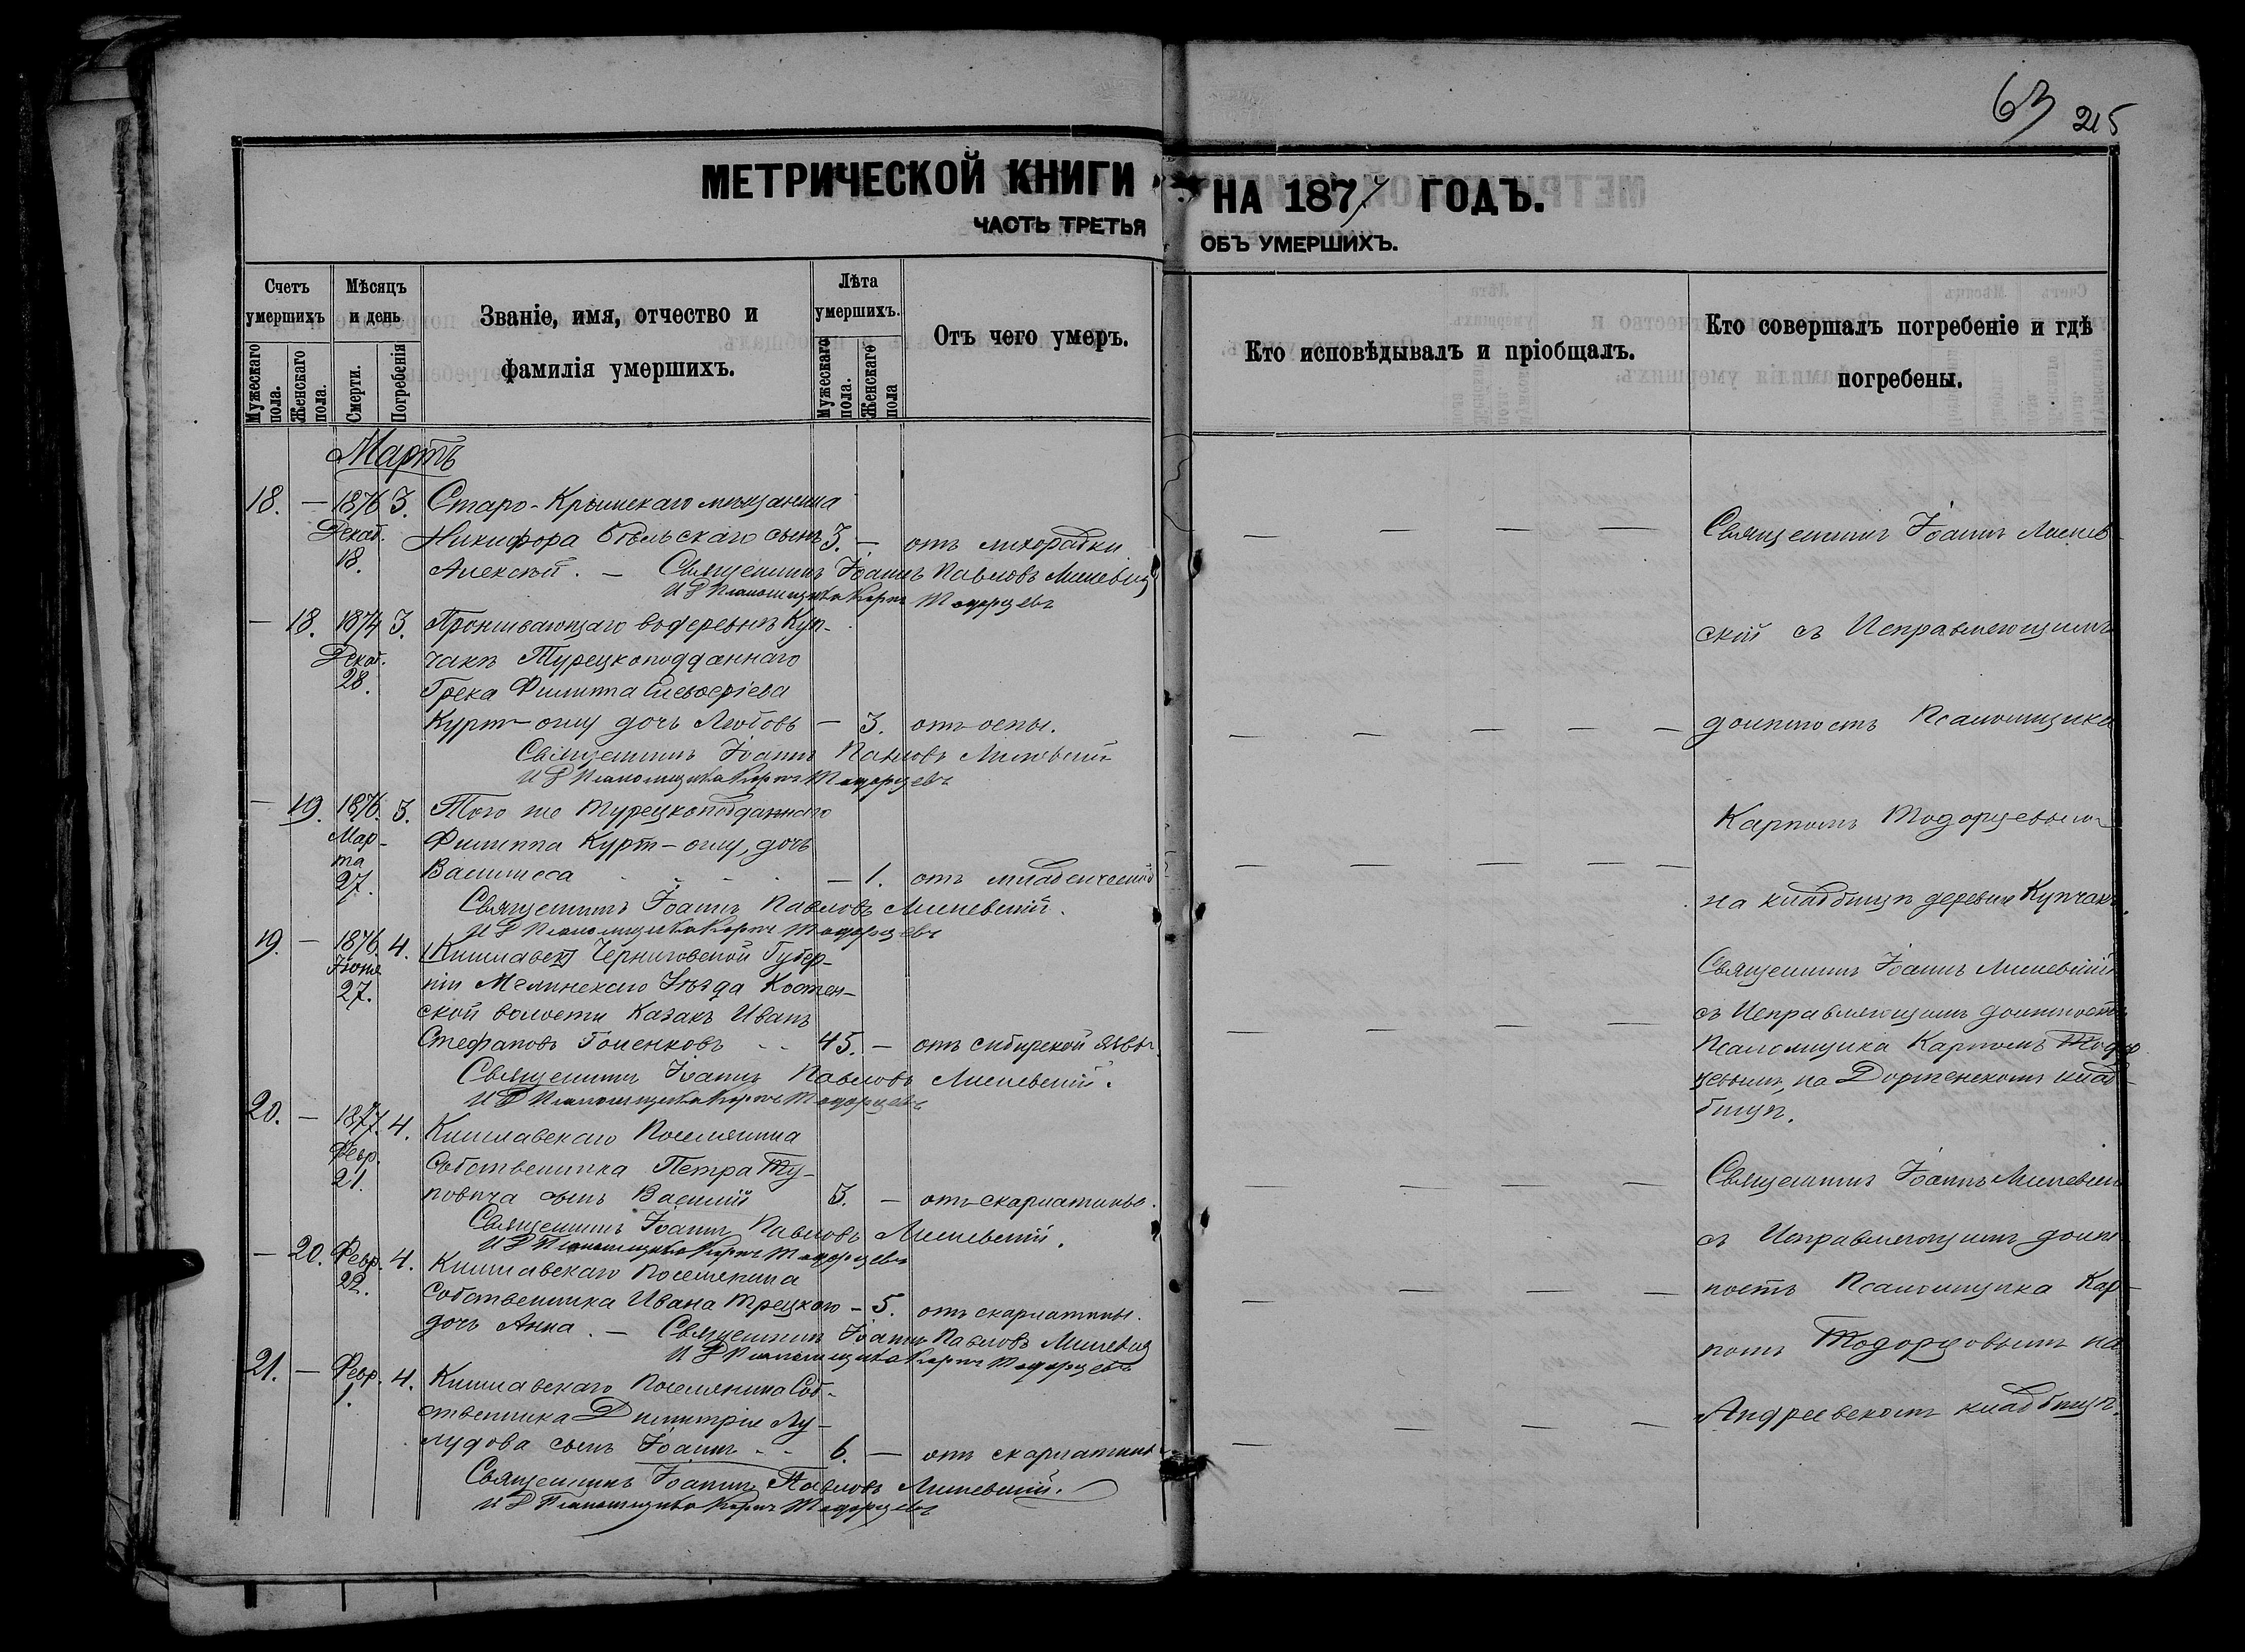 63 215
МЕТРИЧЕСКОЙ КНИГИ НА 1877 ГОДЪ.
ЧАСТЬ ТРЕТЬЯ ОБЪ УМЕРШИХЪ.
Счетъ умершихъ
Мужескаго пола.
Женскаго пола.
Мѣсяцъ и день
Смерти.
Погребенія
Званіе, имя, отчество и
фамилія умершихъ.
Лѣта умершихъ.
Мужескаго пола.
Женскаго пола
Отъ чего умеръ.
Кто исповѣдывалъ и пріобщалъ.
Кто совершалъ погребеніе и гдѣ
погребены.
Мартъ
18. — 1876 3. Старо-Крымскаго мѣщанина
Декаб. Никифора Бѣльскаго сынъ 3. — отъ лихорадки
18. Алексѣй. — Священникъ Іоаннъ Павловъ
И Д Псаломщика Карпъ Тодорцевъ
— 18. 1874 3. Проживающаго въ деревнѣ Куп-
Декаб. чакъ Турецкоподданнаго
28. Грека Филиппа Елевѳеріева
Курт-оглу дочь Любовь — 3. отъ оспы.
Священникъ Іоаннъ Павловъ
И Д Псаломщика Карпъ Тодорцевъ
— 19. 1876. 3. Того же Турецкоподданнаго
Мар- Филиппа Курт-оглу, дочь
та Василисса — 1. отъ младенческой
27. Священникъ Іоаннъ Павловъ
И Д Псаломщика Карпъ Тодорцевъ
19. — 1876. 4. Черниговской Губер-
Іюня ніи Уѣзда Костен-
27. ской волости Казакъ Иванъ
Стефановъ 45. — отъ сибирской язвы.
Священникъ Іоаннъ Павловъ
И Д Псаломщика Карпъ Тодорцевъ
20. — 1877. 4. Кишлавскаго Поселянина
Февр. Собственника Петра Ту-
21. повича сынъ Василій 3. — отъ скарлатины.
Священникъ Іоаннъ Павловъ
И Д Псаломщика Карпъ Тодорцевъ
— 20. Февр. 4. Кишлавскаго Поселянина
22. Собственника Ивана Трецкого — 5. отъ скарлатины.
дочь Анна. — Священникъ Іоаннъ Павловъ
И Д Псаломщика Карпъ Тодорцевъ
21. — Февр. 4. Кишлавскаго Поселянина Соб-
1. ственника Димитрія Лу-
лудова сынъ Іоаннъ 6. — отъ скарлатины
Священникъ Іоаннъ Павловъ
И Д Псаломщика Карпъ Тодорцевъ
Священникъ Іоаннъ
ской съ Исправляющимъ
должность Псаломщика
Карпомъ Тодорцевымъ
на кладбищѣ деревни Купчакъ.
Священникъ Іоаннъ
съ Исправляющимъ должность
Псаломщика Карпомъ Тодор
цевымъ, на кладб-
бищѣ.
Священникъ Іоаннъ
съ Исправляющимъ долж
ность Псаломщика Кар-
помъ Тодорцовымъ на
Андреевскомъ кладбищѣ.